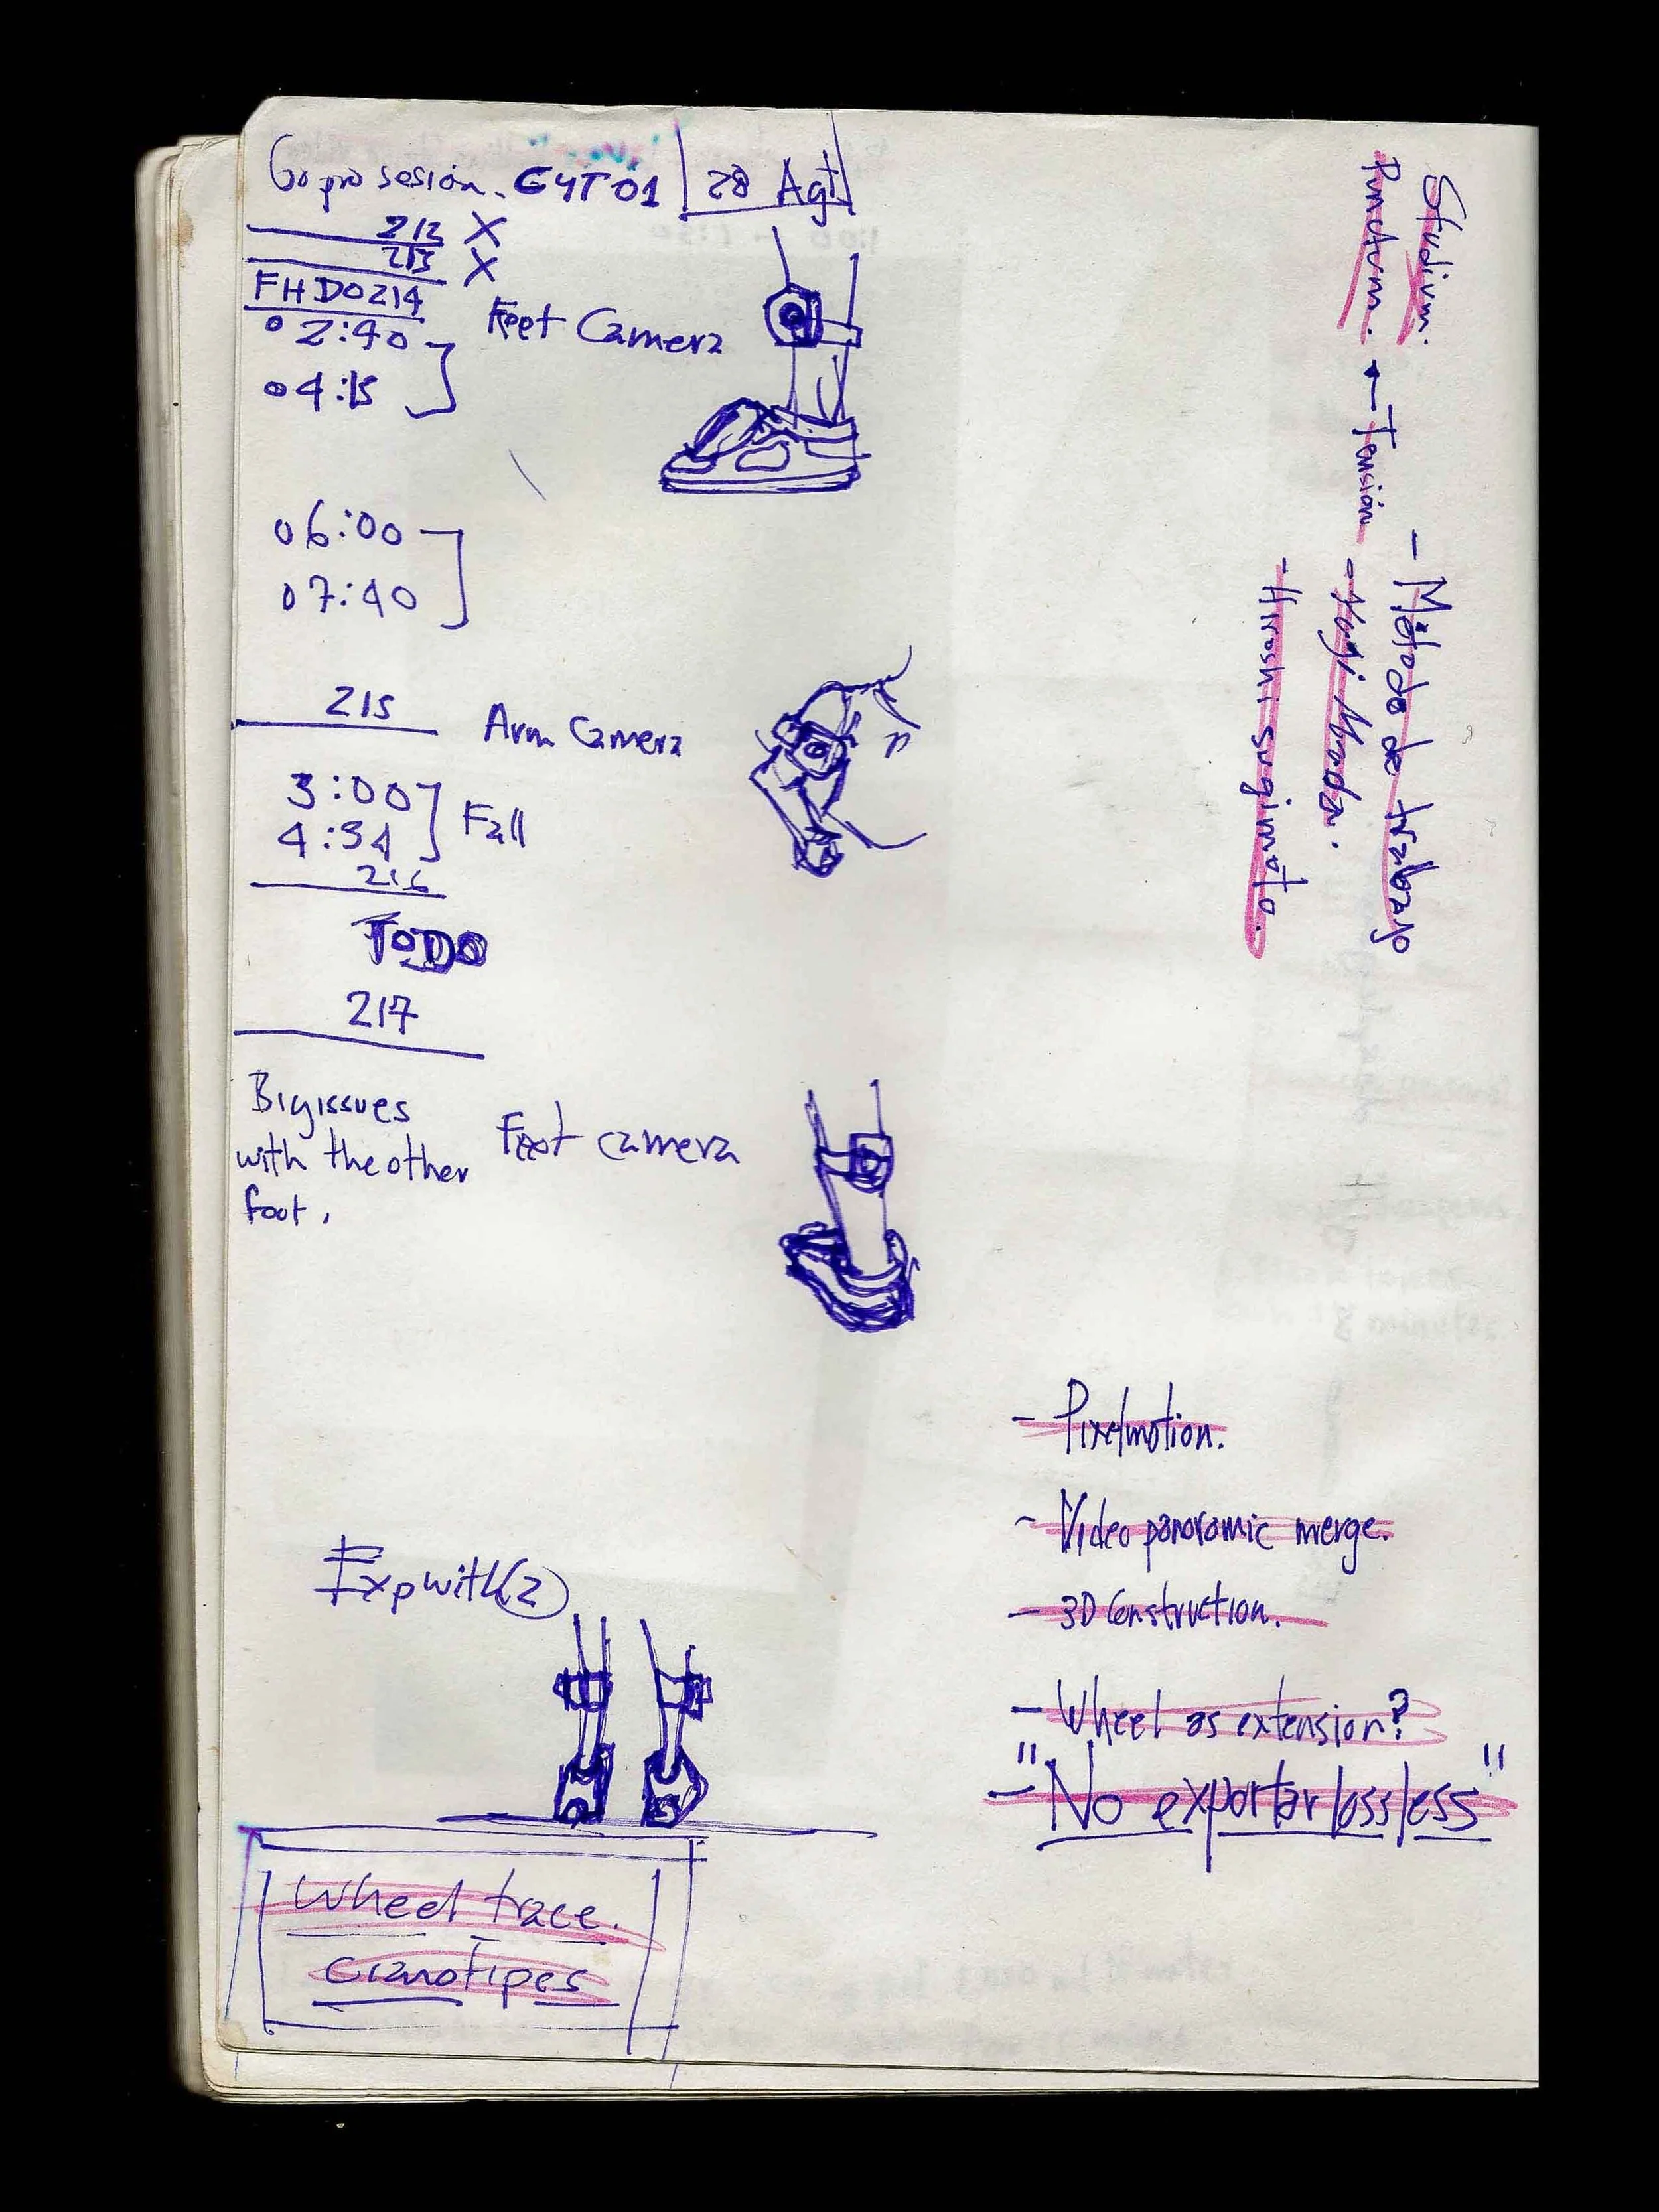 Go pro sesión. G4T01 | 28 Agt
212 X
213 X
FHD0214
02:40
04:15
Feet Camera
06:00
07:40
215
Arm Camera
3:00
4:34
Fall
216
TODO
217
Big issues
with the other
foot.
Foot camera
Exp with (2)
Wheel trace.
cianotipes
Studium.
Punctum. ← Tensión
- Método de trabajo
- Hiroshi sugimoto.
- Pixelmotion.
- Video panoramic merge.
- 3D Construction.
- Wheel as extension?
- "No exportar lossless"